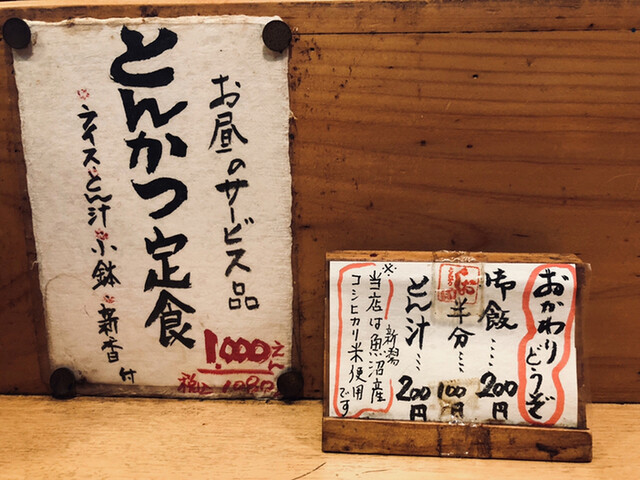 お昼のサービス品
とんかつ定食
ライス とん汁 小鉢 新香付
1,000えん
税込 1080
おかわりどうぞ
御飯‥‥200円
半分‥‥100円
とん汁‥‥200円
※当店は新潟魚沼産
コシヒカリ米使用です